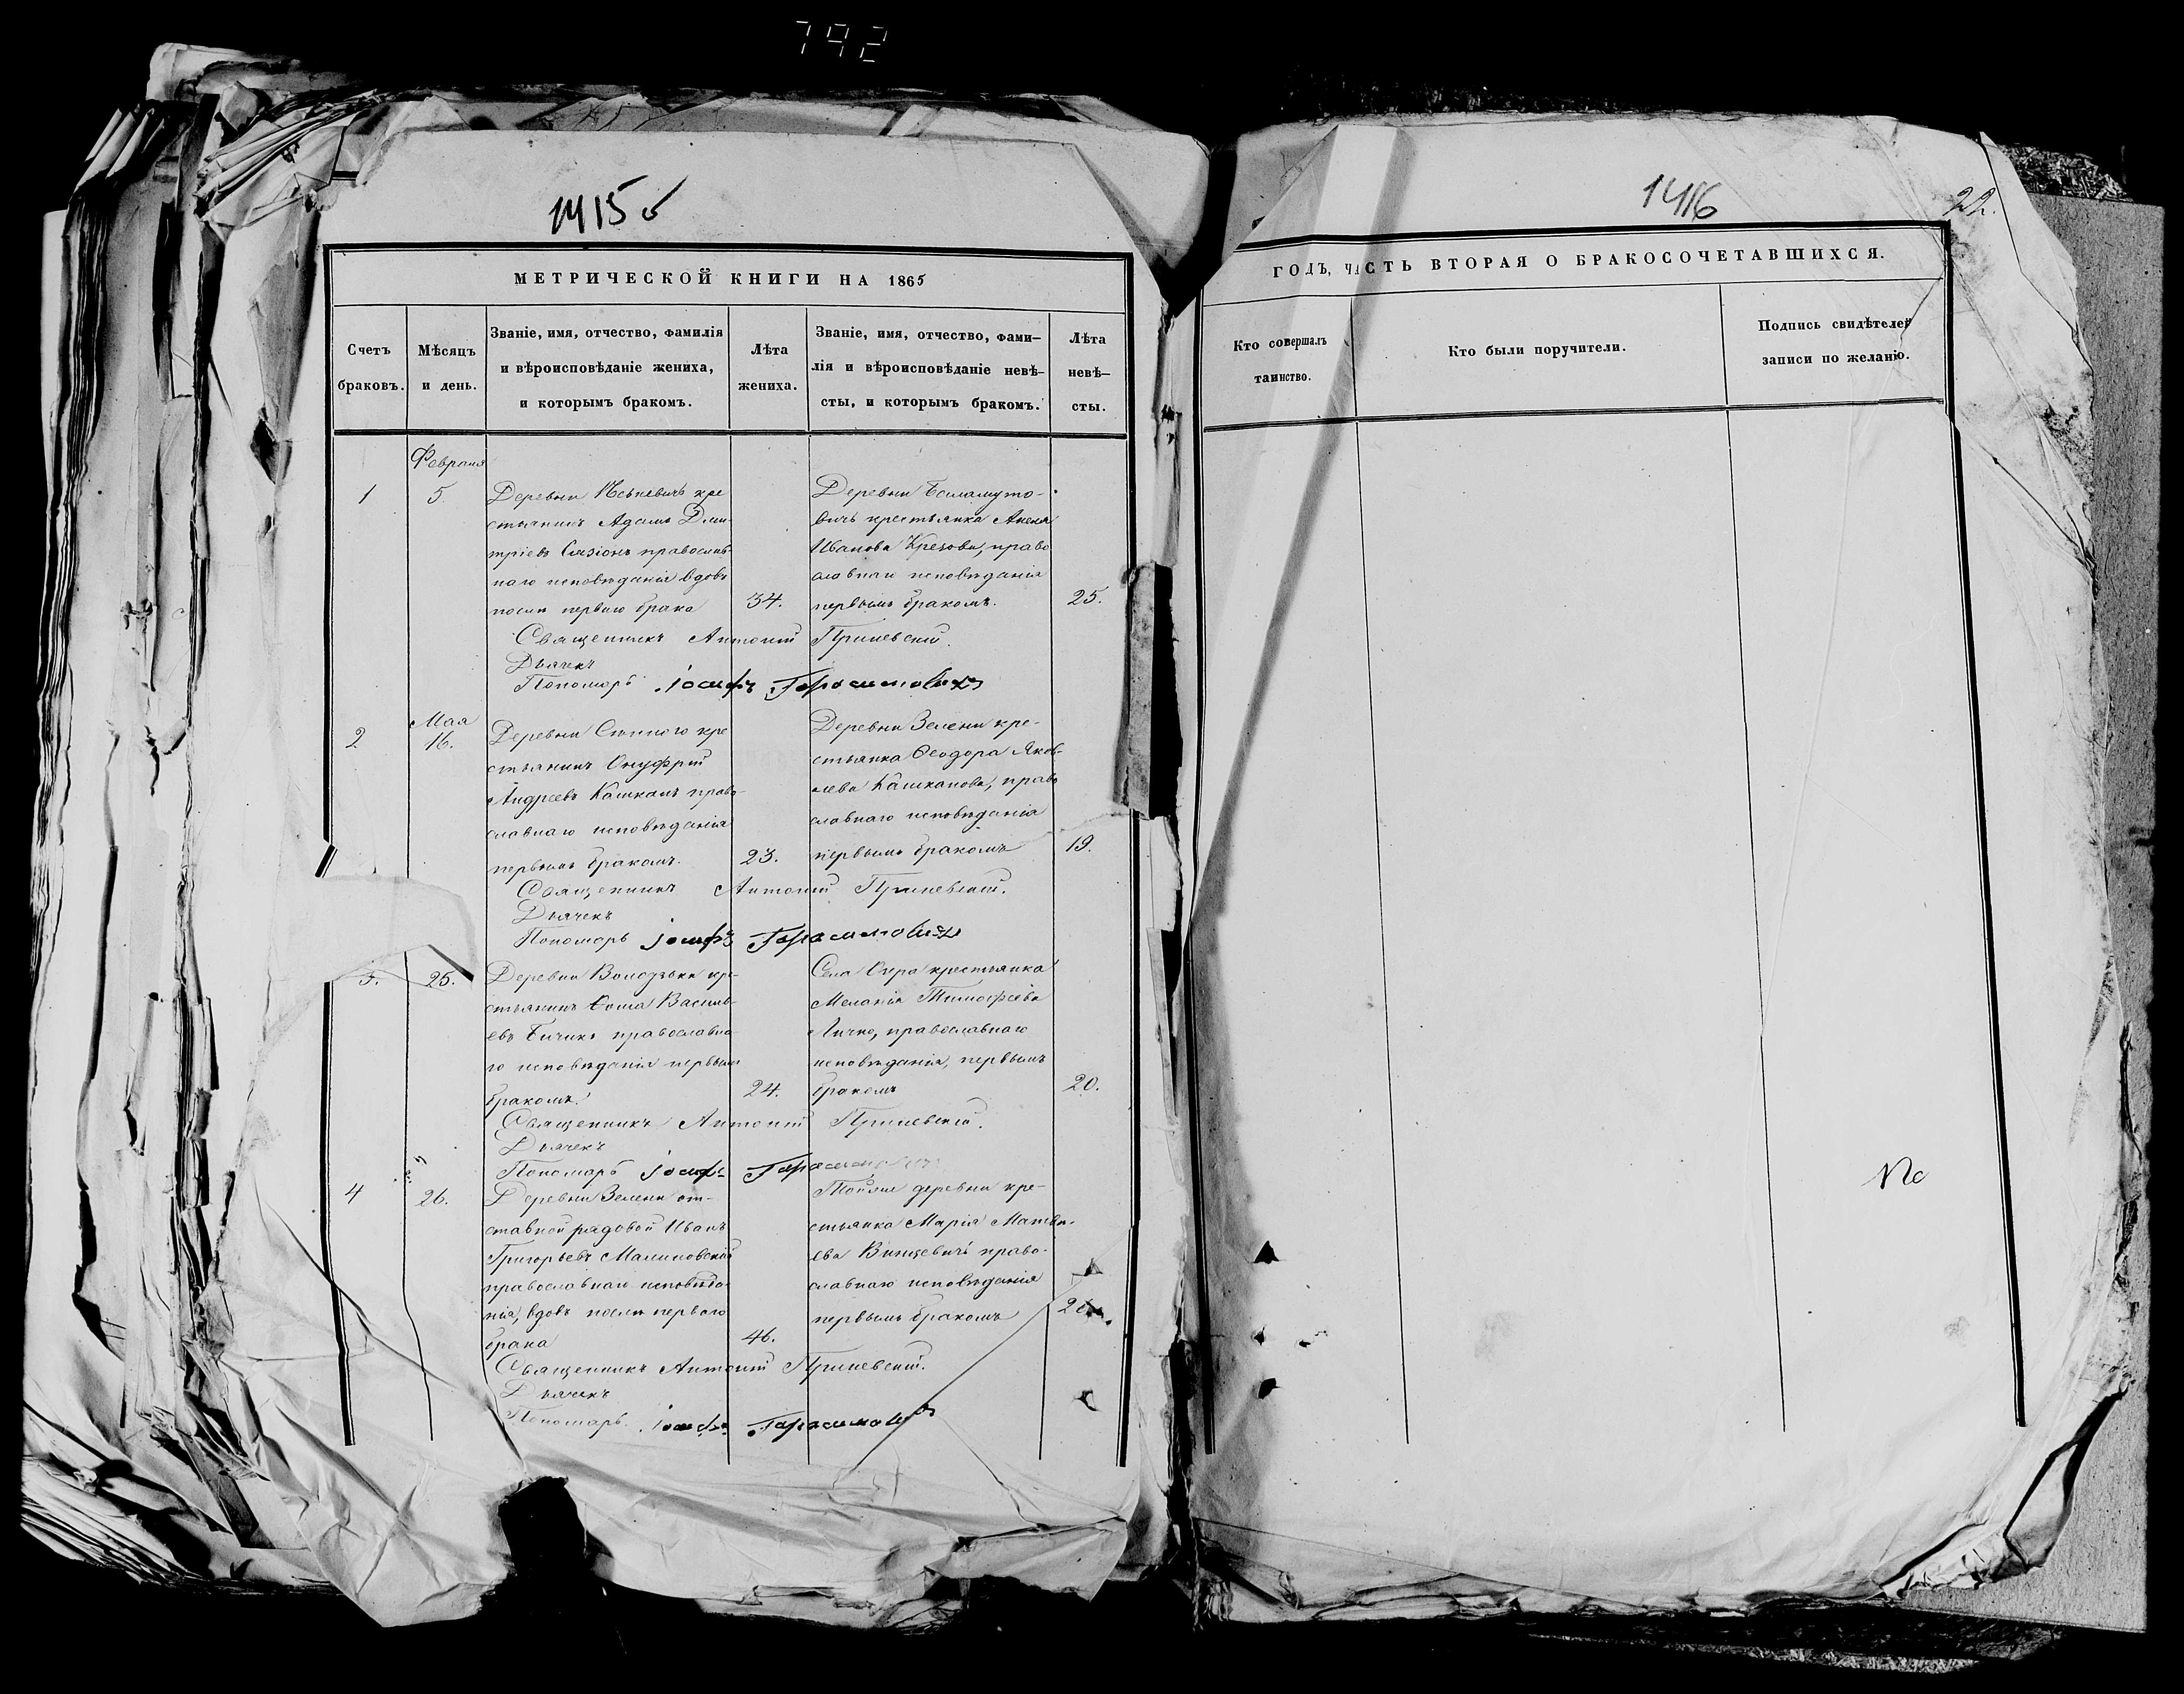 792
1415
1416
22.
МЕТРИЧЕСКОЙ КНИГИ НА 1865
ГОДЪ, ЧАСТЬ ВТОРАЯ О БРАКОСОЧЕТАВШИХСЯ.
Счетъ браковъ.
Мѣсяцъ и день.
Званіе, имя, отчество, фамилія
и вѣроисповѣданіе жениха,
и которымъ бракомъ.
Лѣта жениха.
Званіе, имя, отчество, фами–
лія и вѣроисповѣданіе невѣ–
сты, и которымъ бракомъ.
Лѣта невѣ–
сты.
Кто совершалъ
таинство.
Кто были поручители.
Подпись свидѣтелей
записи по желанію.
Февраля
1
5.
Деревни кре
стьянинъ Адамъ Дми
тріевъ православ
наго исповѣданія вдовъ
послѣ перваго брака
34.
Деревни
вичь крестьянка
Иванова право
славнаго исповѣданія
первымъ бракомъ.
25.
Священникъ Антоній
Дьячекъ
Пономарь Іосифъ Герасимовичъ
Мая
2
16.
Деревни кре
стьянинъ Онуфрій
Андреевъ Кашканъ право
славнаго исповѣданія
первымъ бракомъ.
23.
Деревни Зелени кре-
стьянка Ѳеодора Яков-
лева Кашканова, право
славнаго исповѣданія
первымъ бракомъ
19.
Священникъ Антоній
Дьячекъ
Пономарь Іосифъ Герасимовичъ
3.
25.
Деревни кре-
стьянинъ Ѳома Василь-
евъ православна
го исповѣданія первымъ
бракомъ.
24.
Села крестьянка
Меланія Тимофеева
православнаго
исповѣданія, первымъ
бракомъ
20.
Священникъ Антоній
Дьячекъ
Пономарь Іосифъ
4
26.
Деревни Зелени от-
ставной рядовой Иванъ
Григорьевъ Малиновскій
православнаго исповѣда-
нія, вдовъ послѣ перваго
брака
46.
Тойже деревни кре-
стьянка Марія Матвѣ-
ева право-
славнаго исповѣданія
первымъ бракомъ
Священникъ Антоній
Дьячекъ
Пономарь Іосифъ Герасимовичъ